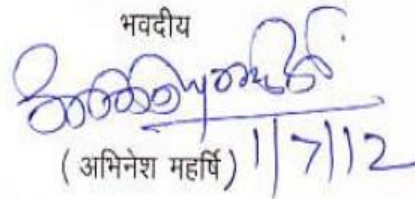 भवदीय
( अभिनेश महर्षि) 1/7/12